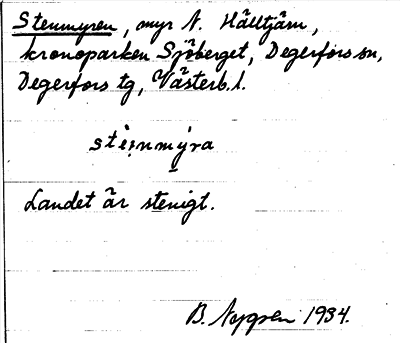 Stenmyren, myr N. Hälltjärn,
kronoparken Sjöberget, Degerfors sn,
Degerfors tg, Västerb. l.
stèi̯nmy̆́ra
Landet är stenigt.
B. Nygren 1934.